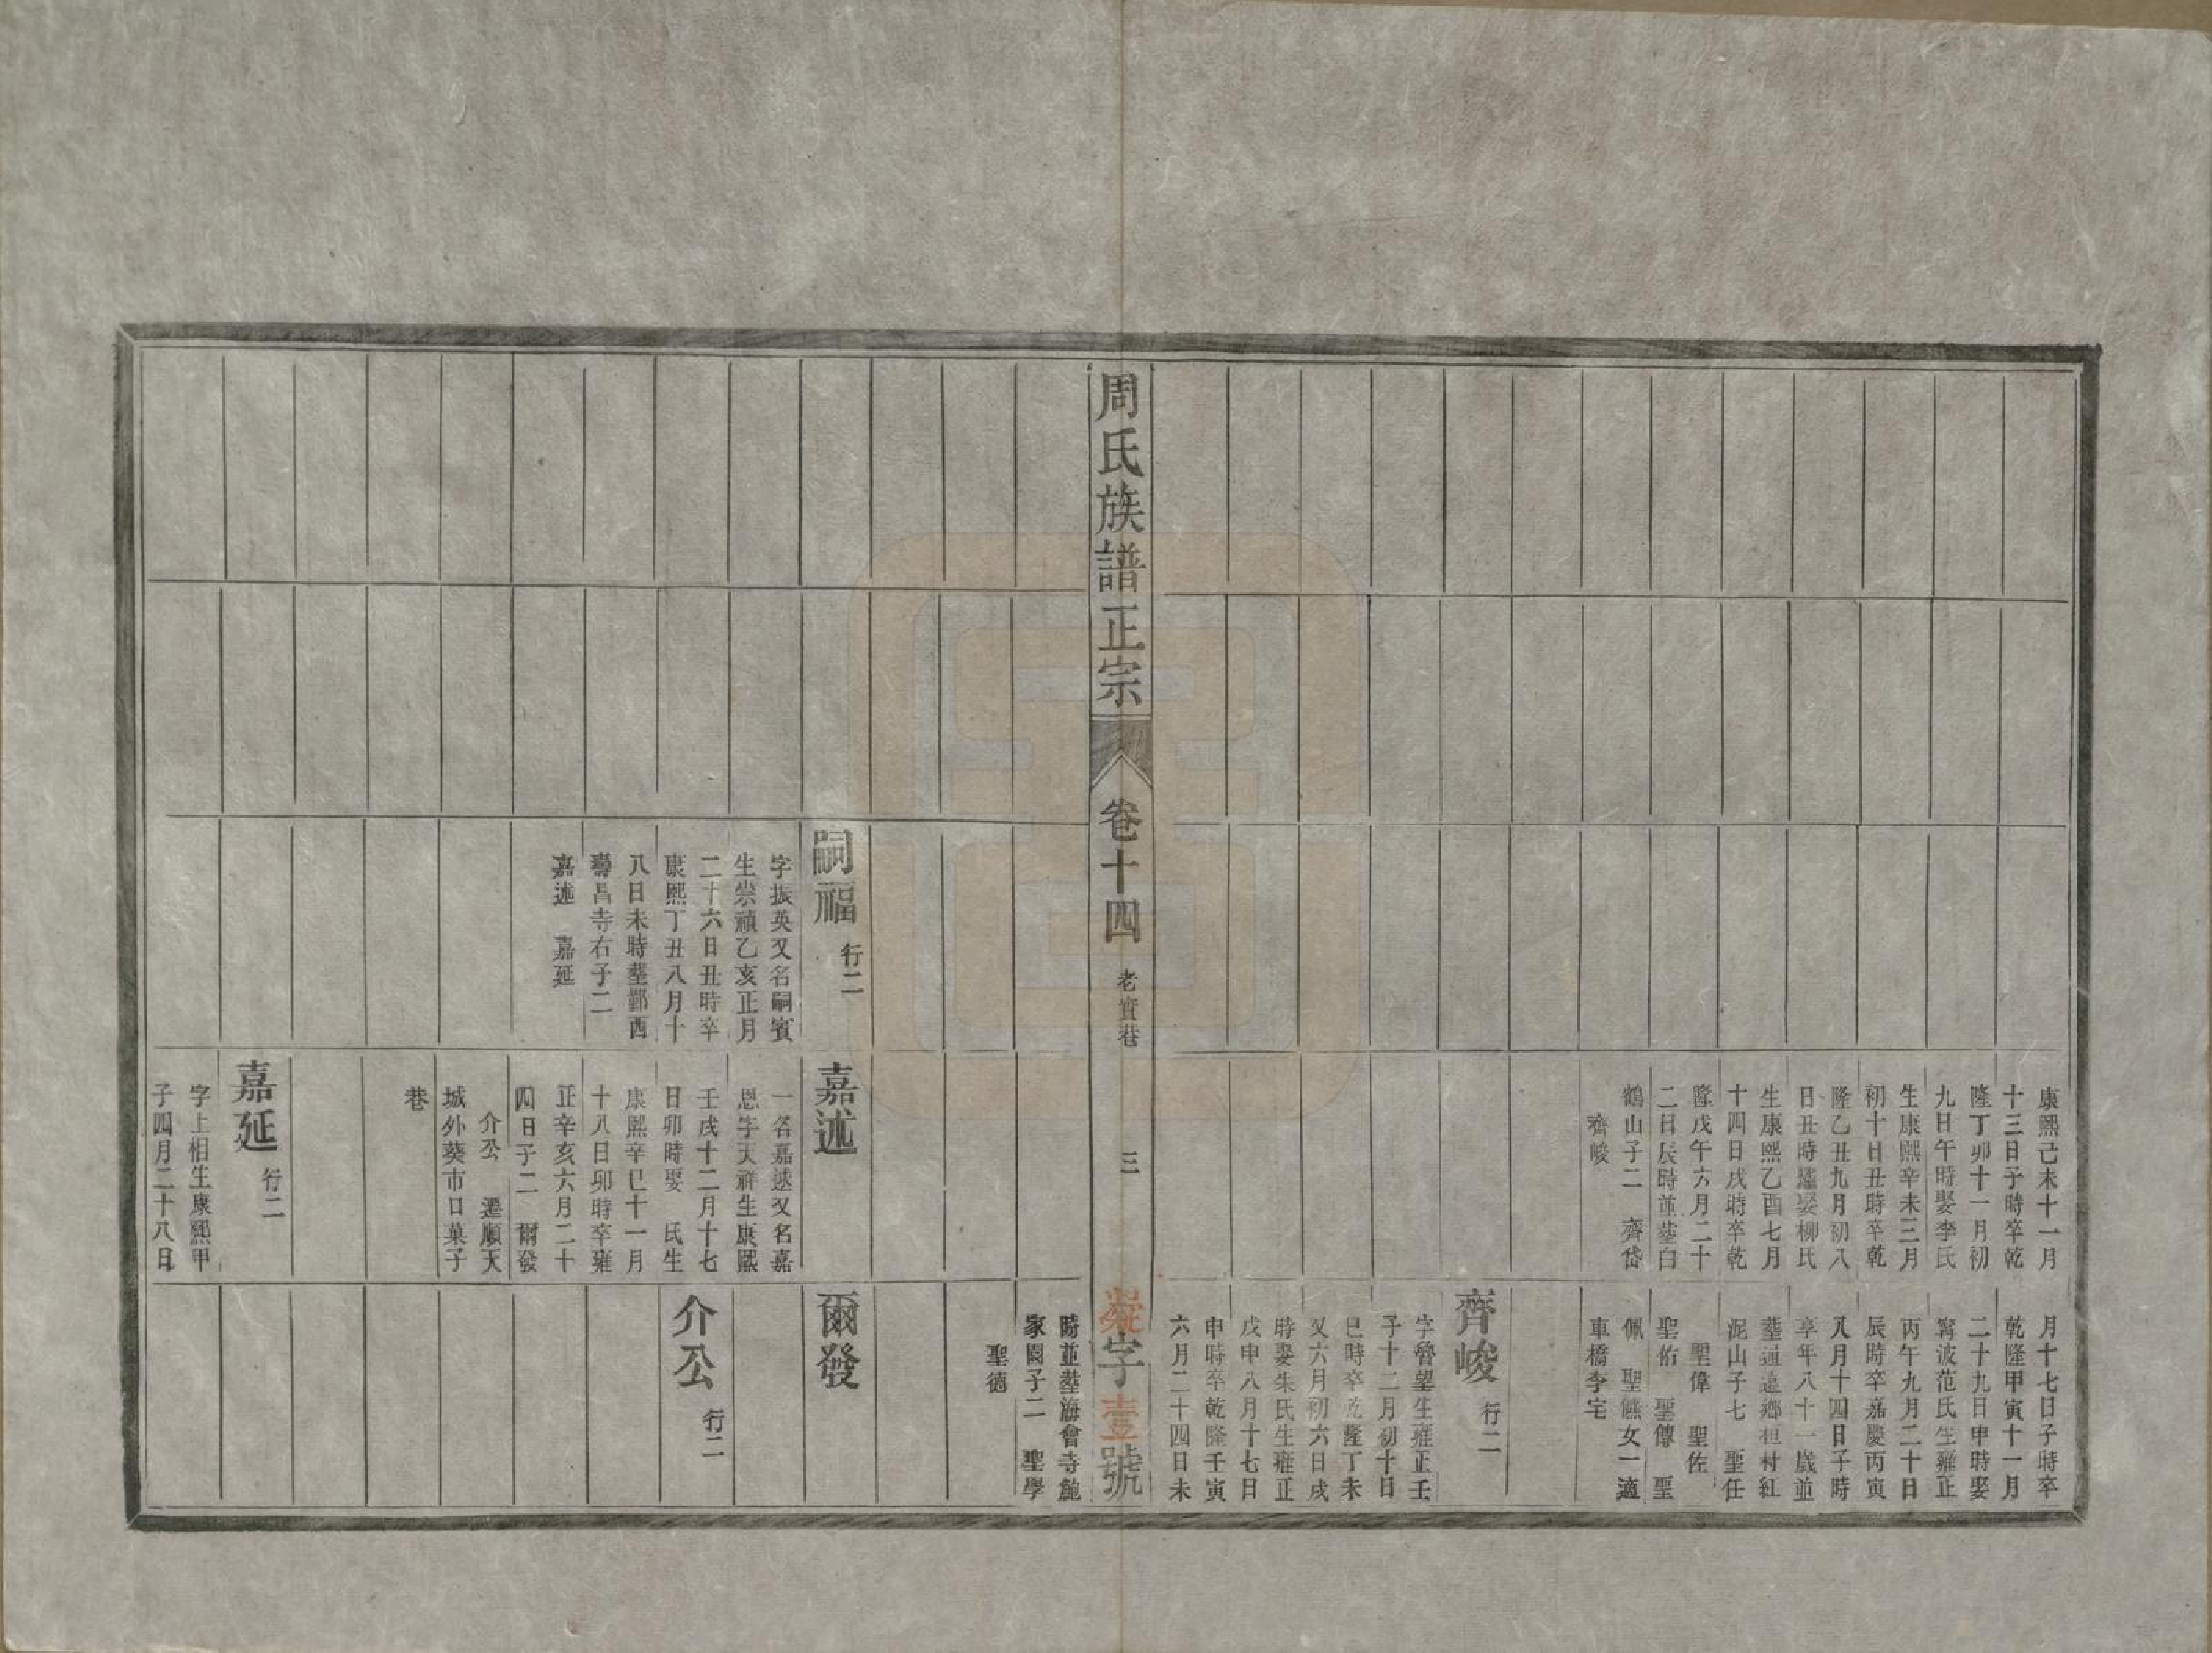 康熙己未十一月
十三日子時卒乾
隆丁卯十一月初
九日午時娶李氏
生康熙辛未三月
初十日丑時卒乾
隆乙丑九月初八
日丑時繼娶柳氏
生康熙乙酉七月
十四日戌時卒乾
隆戊午六月二十
二日辰時並塟白
鶴山子二 齊岱
齊峻
月十七日子時卒
乾隆甲寅十一月
二十九日申時娶
甯波范氏生雍正
丙午九月二十日
辰時卒嘉慶丙寅
八月十四日子時
享年八十一歲並
塟通遠鄉桓村紅
泥山子七 聖任
聖偉 聖佐
聖佑 聖傳 聖
佩 聖 女一適
車橋李宅
齊峻 行二
字魯望生雍正壬
子十二月初十日
巳時卒乾隆丁未
又六月初六日戌
時娶朱氏生雍正
戊申八月十七日
申時卒乾隆壬寅
六月二十四日未
周氏族譜正宗
卷十四
老實巷
三
凝字壹號
時並塟海會寺鮑
家園子二 聖學
聖德
嗣福 行二
字振英又名嗣賓
生崇禎乙亥正月
二十六日丑時卒
康熙丁丑八月十
八日未時塟鄞西
壽昌寺右子二
嘉述 嘉延
嘉述
一名嘉逑又名嘉
恩字天祥生康熙
壬戌十二月十七
日卯時娶 氏生
康熙辛巳十一月
十八日卯時卒雍
正辛亥六月二十
四日子二 爾發
介公 遷順天
城外葵市口菓子
巷
嘉延 行二
字上相生康熙甲
子四月二十八日
爾發
介公 行二